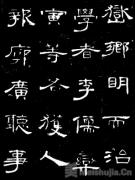 嶽鄉明而治
學者李儒欒
寅等各獲人
報廓廣聽事
Meishujia.Cn